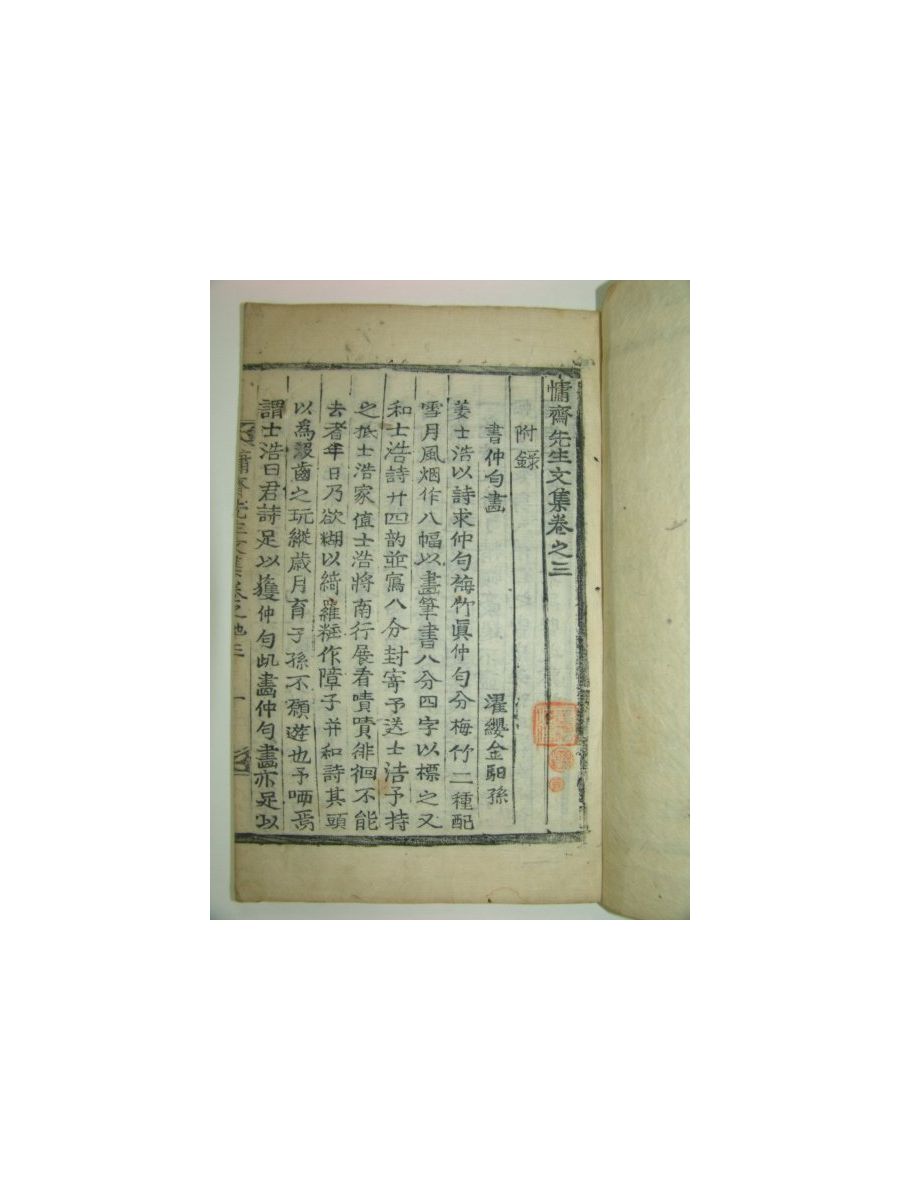 慵齋先生文集卷之三
附錄
書仲勻畫 濯纓金馹孫
姜士浩以詩求仲勻梅竹眞仲勻分梅竹二種配
雪月風烟作八幅以畫筆書八分四字以標之又
和士浩詩廿四韵並寫八分封寄予送士浩予持
之抵士浩家値士浩將南行展看嘖嘖徘徊不能
去者年日乃欲糊以綺羅粧作障子并和詩其頭
以爲沒齒之玩縱歲月育子孫不顧遊也予哂焉
謂士浩曰君詩足以獲仲勻此畫仲勻畫亦足以
慵齋先生文集卷之三 一